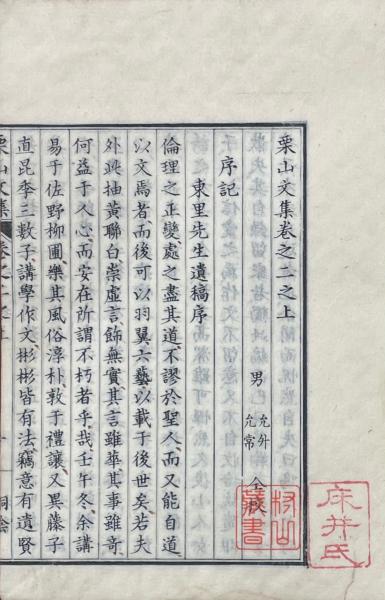 栗山文集卷之二之上
男 允升 允常 仝校
序記
東里先生遺稿序
倫理之正變、處之盡其道、不謬於聖人而又能自道
以文焉者、而後可以羽翼六藝、以載于後世矣、若夫
外此抽黃聯白、崇虛言、飾無實、其言雖華、其事雖奇、
何益于人心、而安在所謂不朽者乎哉、壬午冬、余講
易于佐野柳圃、樂其風俗淳朴、敦于禮讓、又異藤子
直昆季三數子、講學作文、彬彬皆有法、竊意有遺賢
栗山文集 卷之二之上 一
床井氏
藏書